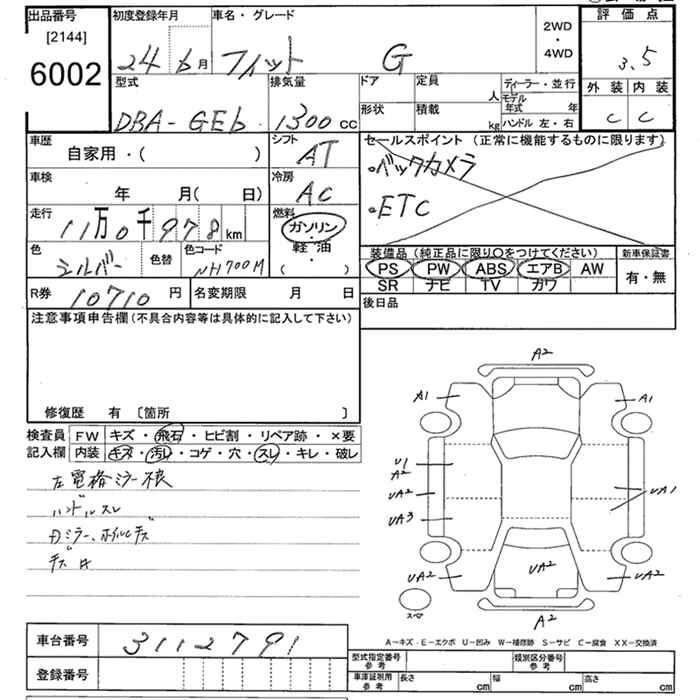 出品番号
[2144]
6002
初度登録年月
24 6月
車名・グレード
フィット G
2WD
・
4WD
評価点
3.5
外装 内装
C C
型式
DBA-GE6
排気量
1300 cc
ドア
形状
定員
人
積載
kg
ディーラー・並行
モデル年式 年
ハンドル 左・右
車歴
自家用・( )
シフト
AT
車検
年 月( 日)
冷房
AC
走行
11万0千978km
燃料
ガソリン
軽・油
( ・ )
色
シルバー
色替
色コード
NH700M
R券
10710円
名変期限 月 日
セールスポイント (正常に機能するものに限ります)
・バックカメラ
・ETC
装備品 (純正品に限り○をつけてください)
PS PW ABS エアB AW
SR ナビ TV カワ
新車保証書
有・無
後日品
注意事項申告欄(不具合内容等は具体的に記入して下さい)
修復歴 有 〔箇所 〕
検査員
記入欄
FW キズ・飛石・ヒビ割・リペア跡・×要
内装 キズ・汚レ・コゲ・穴・スレ・キレ・破レ
左電格ミラー不良
ハンドルスレ
A2
A1 A1
U1
A2
UA2
UA3
UA1
UA2 UA2 UA2
スペア
A2
A-キズ E-エクボ U-凹み W-補修跡 S-サビ C-腐食 XX-交換済
車台番号
3112791
登録番号
型式指定番号
参考
類別区分番号
参考
車庫証明用
参考
長さ cm
幅 cm
高さ cm